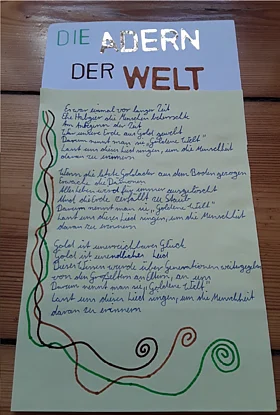 DIE ADERN
DER WELT
Es war einmal vor langer Zeit
Ehe Habgier die Menschen beherrschte
Am Anbeginn der Zeit
War unsere Erde aus Gold gewebt
Darum nennt man sie "Goldene Welt"
Lasst uns dieses Lied singen, um die Menschheit
daran zu erinnern
Wenn die letzte Goldader aus dem Boden gezogen
Erwachen die Dämonen
Alles Leben wird für immer ausgelöscht
Und die Erde zerfällt zu Staub
Darum nennt man sie "Goldene Welt"
Lasst uns dieses Lied singen, um die Menschheit
daran zu erinnern
Gold ist unerreichbares Glück
Gold ist unendliches Leid
Dieses Wissen werde über Generationen weitergegeben
von den Großeltern an Eltern, an uns
Darum nennt man sie "Goldene Welt"
Lasst uns dieses Lied singen, um die Menschheit
daran zu erinnern